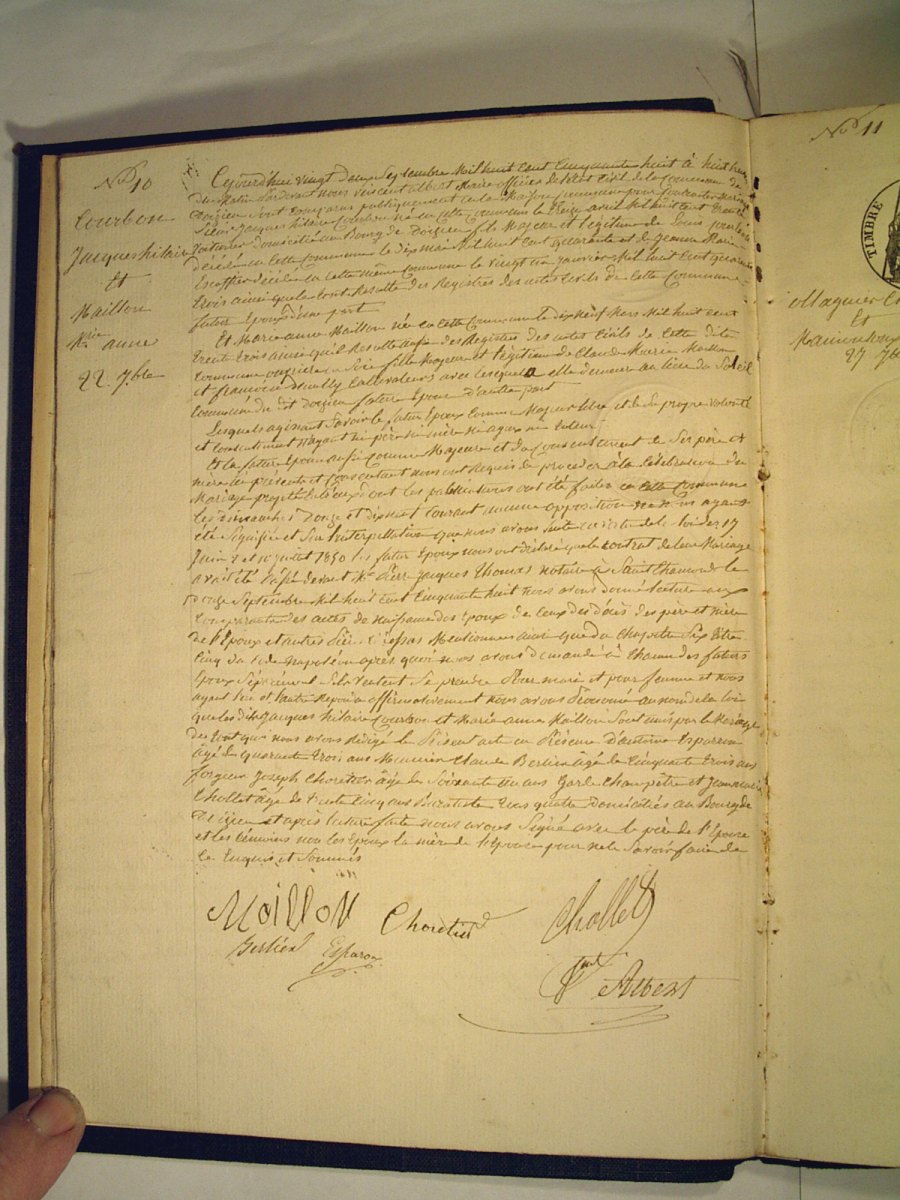 No 10
Courbon
Jacques hilaire
Et
Maillon
Mrie anne
22 7bre
Cejourd'hui vingt deux Septembre Mil huit Cent Cinquante huit à huit heures
du Matin Pardevant nous Vincent Albert Maire officier de l'état Civil de la Commune de
Doizieu Sont Comparus publiquement en la Maison Commune pour Contracter Mariage
Sieur Jacques hilaire Courbon né en cette Commune le treize avril Mil huit Cent trente
domicilié au Bourg de Doizieu fils Majeur et légitime de Louis Courbon
décédé en cette Commune le dix Mai Mil huit Cent quarante et de Jeanne Marie
Escoffier décédée en cette même Commune le vingt janvier Mil huit Cent quarante
trois ainsi que le tout Résulte des Registres des actes Civils de cette Commune
futur Epoux d'une part
Et Marie anne Maillon née en cette Commune le dix neuf Mars Mil huit Cent
trente trois ainsi qu'il Résulte aussi des Registres des actes Civils de cette dite
Commune ouvrière en Soie fille Majeure et légitime de Claude Marie Maillon
et françoise Cultivateurs avec lesquels elle demeure au lieu du Soleil
Commune du dit Doizieu future Epouse d'autre part
Lesquels agissant Savoir le futur Epoux Comme Majeur libre et de Sa propre volonté
et Consentement n'ayant ni père ni mère ni ayeux ni tuteur
Et la future Epouse aussi Comme Majeure et du Consentement de Ses père et
mère ici présents et Consentant nous ont Requis de procéder à la Célébration du
Mariage projeté Entr'eux dont les publications ont été faites en cette Commune
les dimanches Douze et dix neuf Courant aucune opposition ne nous ayant
été Signifiée et Sur l'interpellation que nous avons faite en vertu de la loi des 17
Juin et 10 juillet 1850 les futurs Epoux nous ont déclaré que le Contrat de leur Mariage
avait été passé devant Me Pierre Jacques Thomas notaire à Saint Chamond le
Douze Septembre Mil huit Cent Cinquante huit nous avons donné lecture aux
Comparants des actes de naissance des Epoux de Ceux des décès des père et mère
de l'Epoux et autres pièces Ci dessus Mentionnées ainsi que du Chapitre Six titre
Cinq du Code napoléon après quoi nous avons demandé à Chacun des futurs
Epoux Séparément S'ils veulent Se prendre Pour mari et pour femme et nous
ayant l'un et l'autre Répondu affirmativement nous avons Prononcé au nom de la loi
que les dits Jacques hilaire Courbon et Marie anne Maillon Sont unis par le Mariage
de tout quoi nous avons Rédigé le Présent acte en Présence d'antoine Esparron
âgé de quarante trois ans Menuisier Claude Berlier âgé de Cinquante trois ans
forgeur Joseph Choretier âgé de Soixante un ans Garde Champêtre et Jean marie
Chollet âgé de trente Cinq ans Buraliste tous quatre Domiciliés au Bourg de
Doizieu et après lecture faite nous avons Signé avec le père de l'Epouse
et les témoins non les Epoux la mère de l'Epouse pour ne le Savoir faire de
Ce Enquis et Sommés
Maillon
Choretier
Chollet
Berlier
Esparon
Albert
No 11
TIMBRE
Et
27 7bre